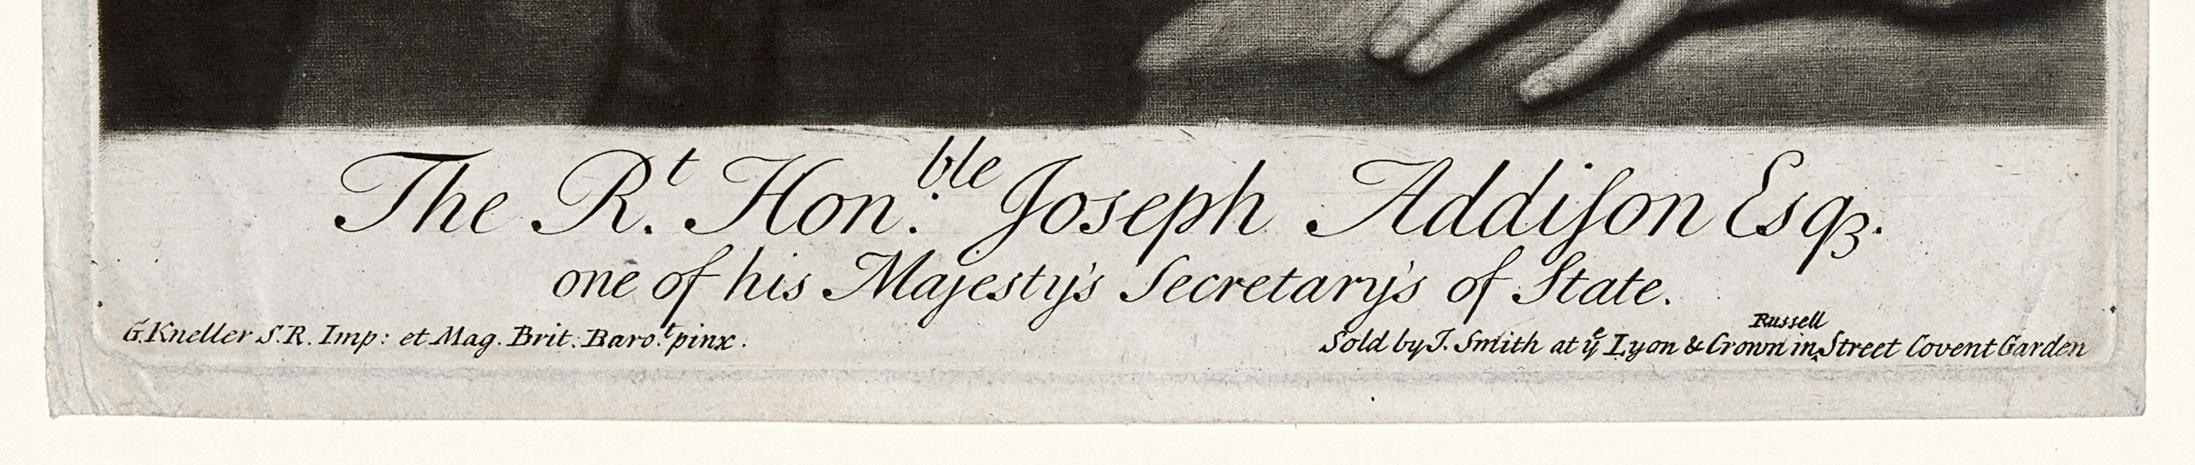 The Rt. Hon:ble Joseph Addiſon Esqꝫ.
one of his Majesty's Secretary's of State.
G. Kneller S.R. Imp: et Mag. Brit. Baro.t pinx.
Sold by J. Smith at ye Lyon & Crown in Russell Street Covent Garden